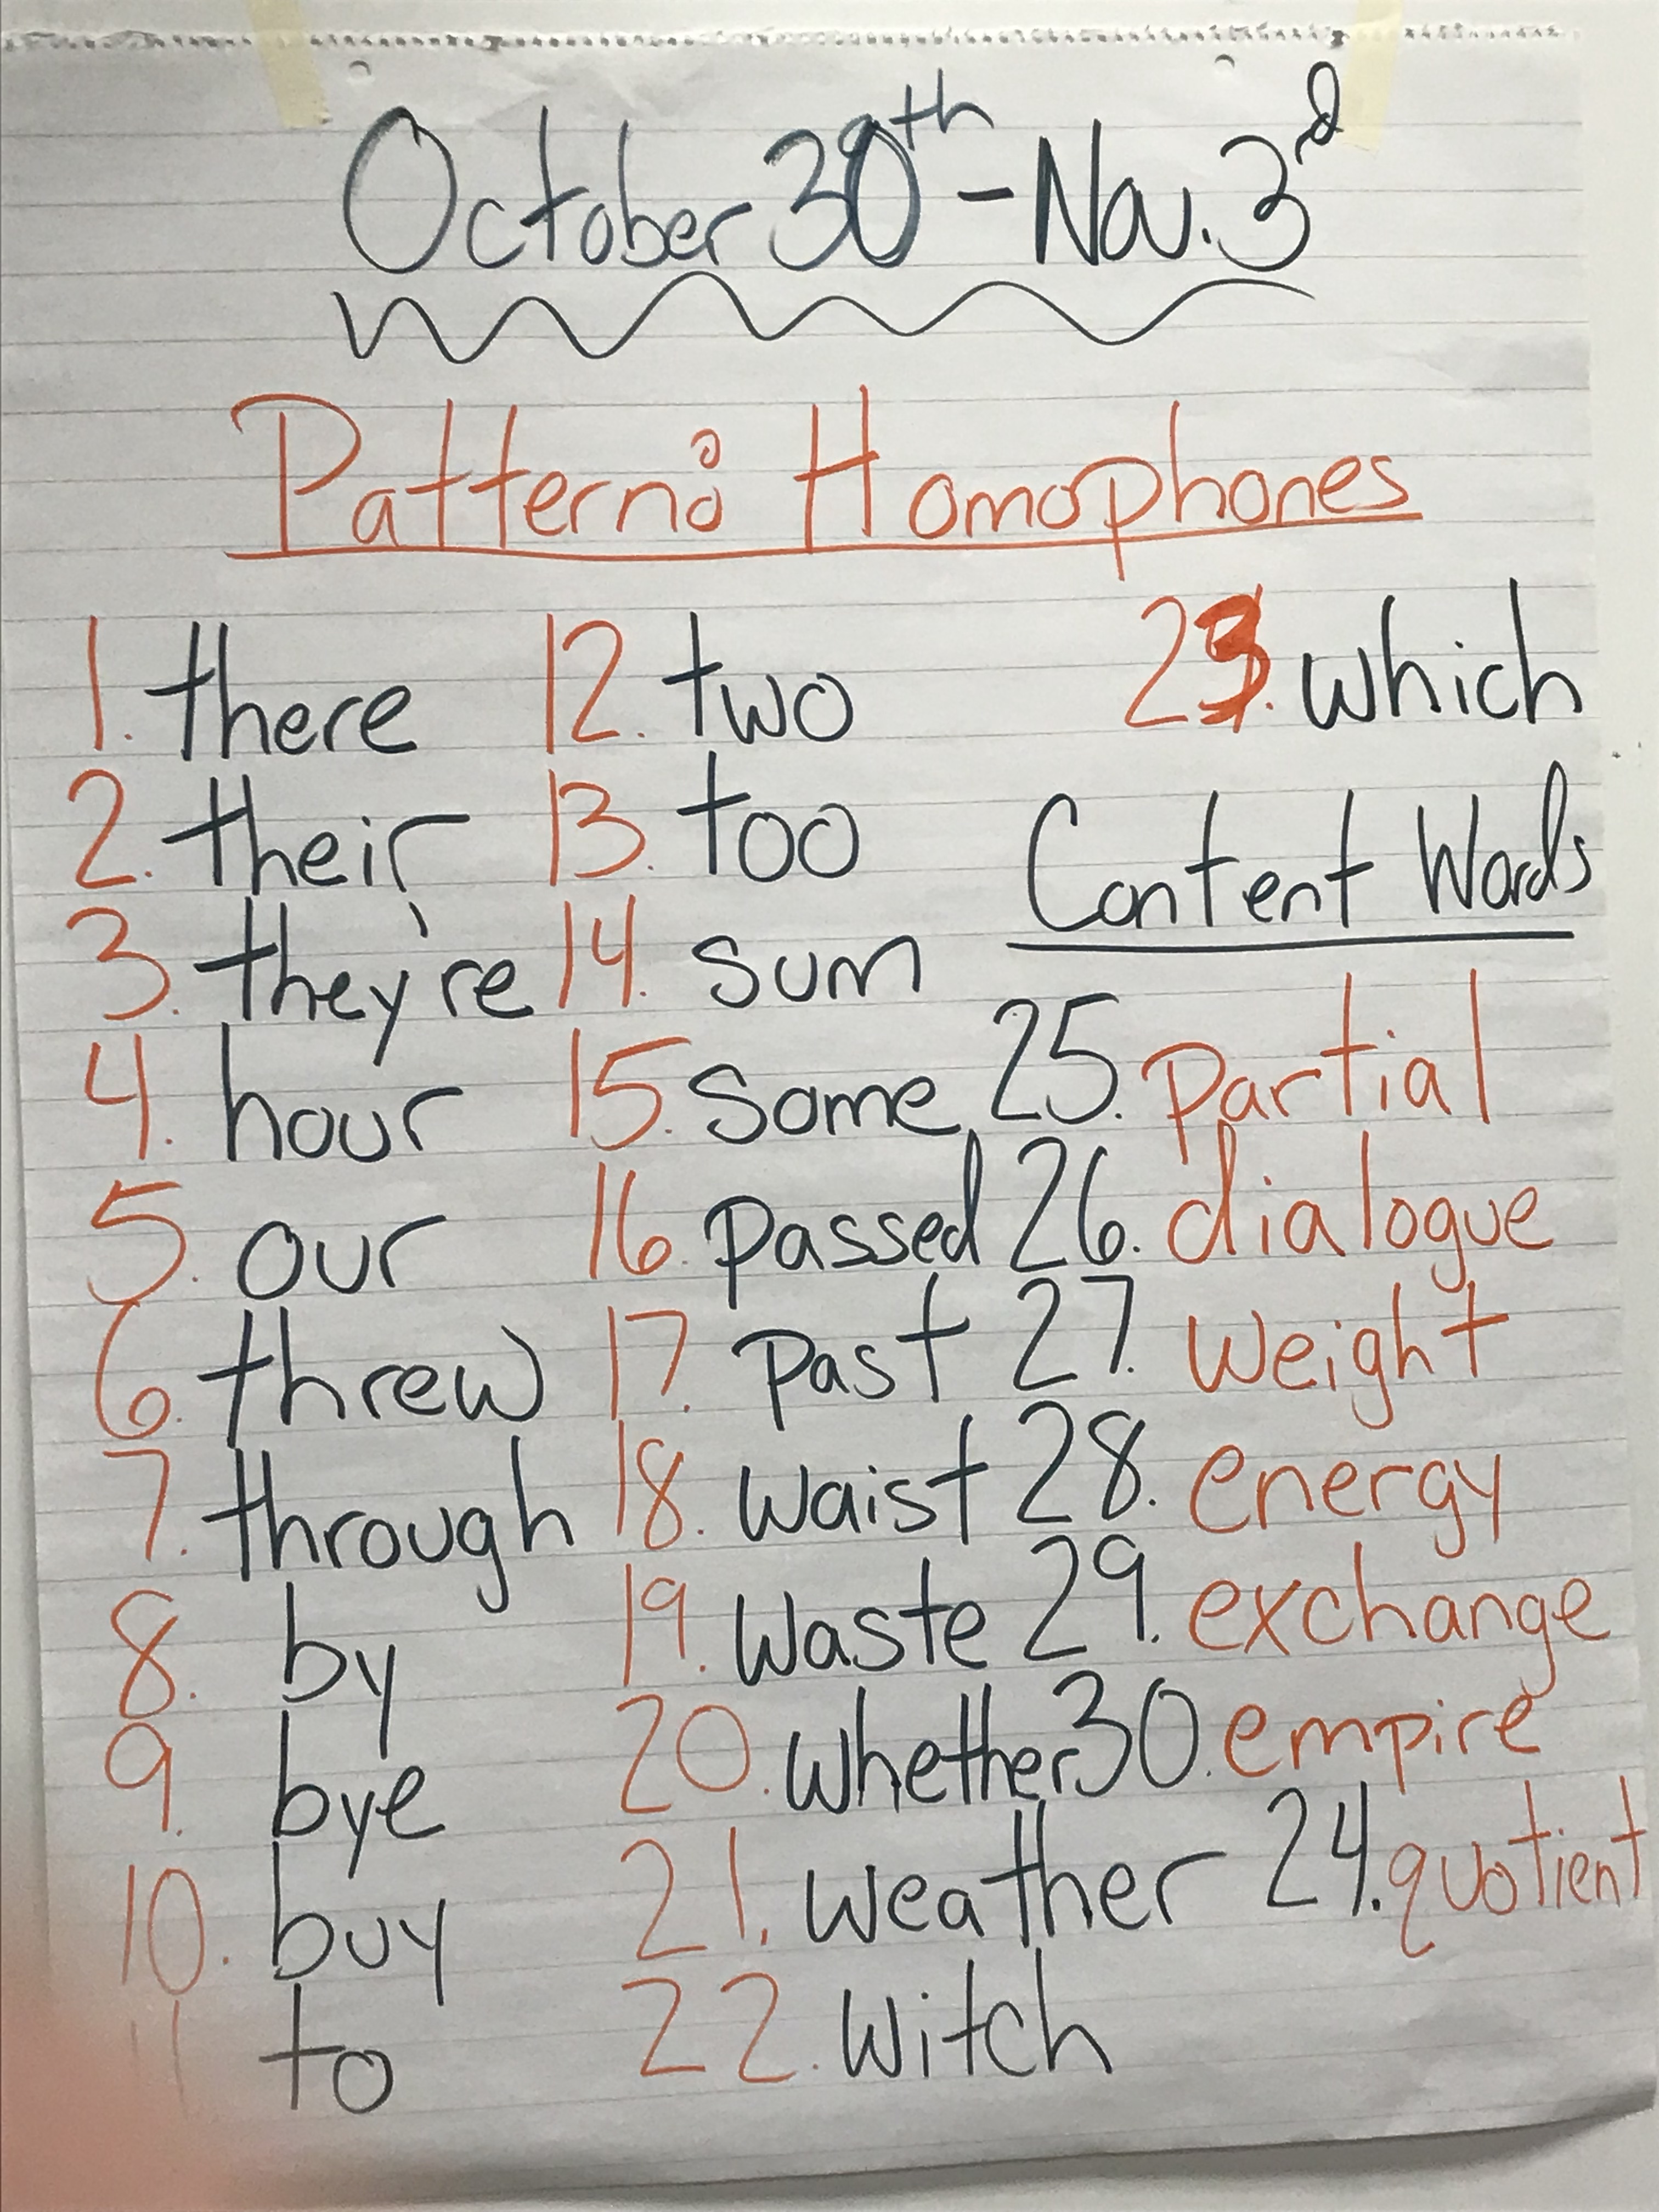 October 30th - Nov. 3rd
Pattern: Homophones
1. there
2. their
3. they're
4. hour
5. our
6. threw
7. through
8. by
9. bye
10. buy
11 to
12. two
13. too
14. sum
15. some
16. passed
17. past
18. waist
19. waste
20. whether
21. weather
22. witch
23. which
Content Words
25. partial
26. dialogue
27. weight
28. energy
29. exchange
30. empire
24. quotient